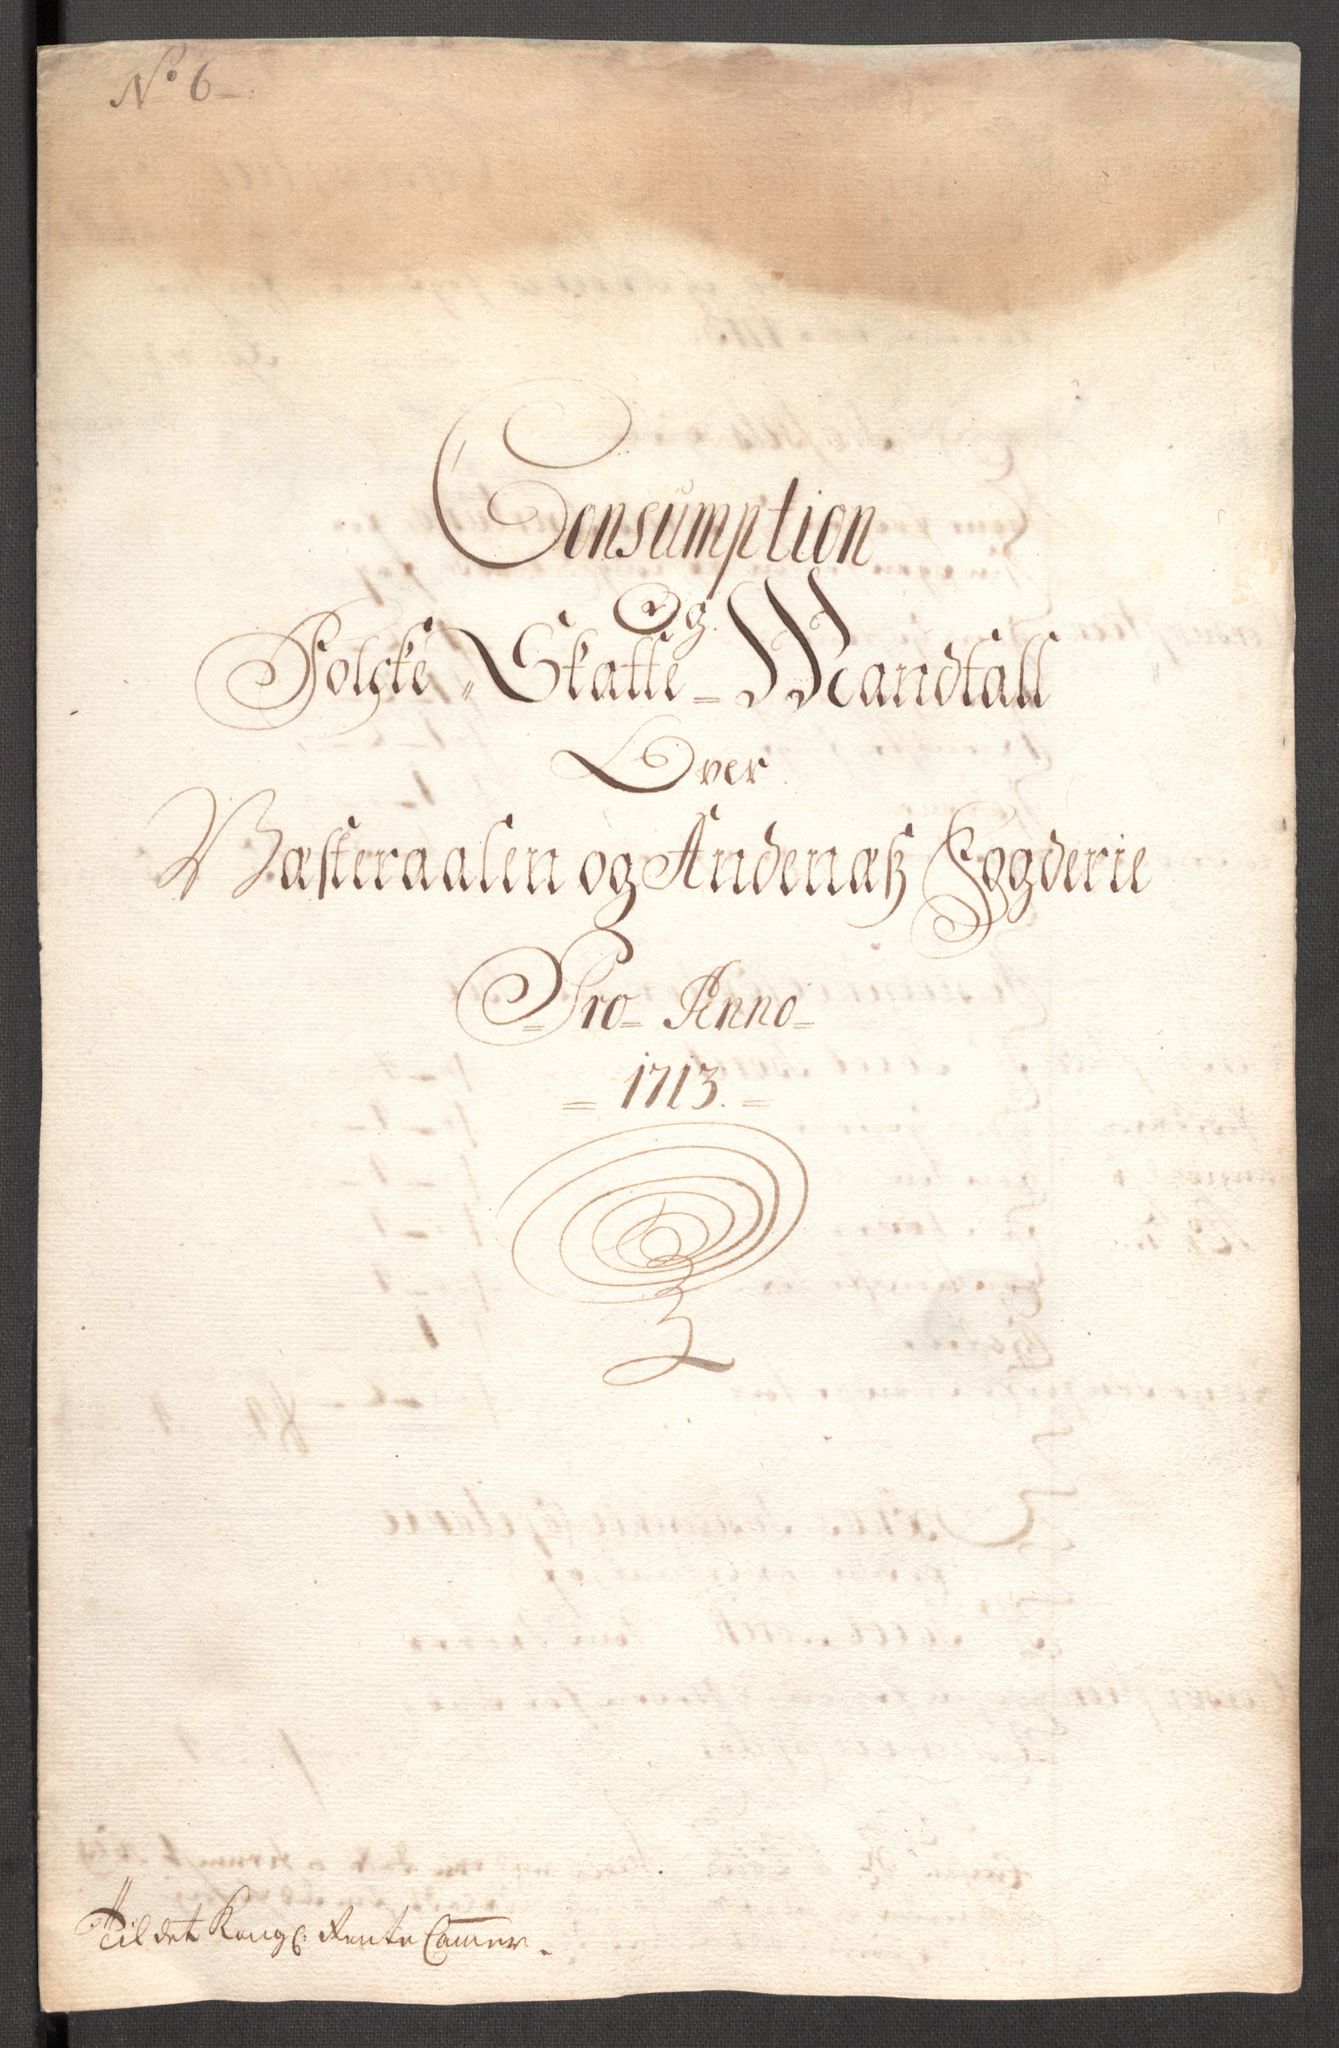 No 6
Consumption
Og
Folcke = Skatte = Mandtall
Over
Væsteraalen og Andenæs Fogderie
Pro Anno
= 1713. =
Til det Kongl: Rente Cammer.